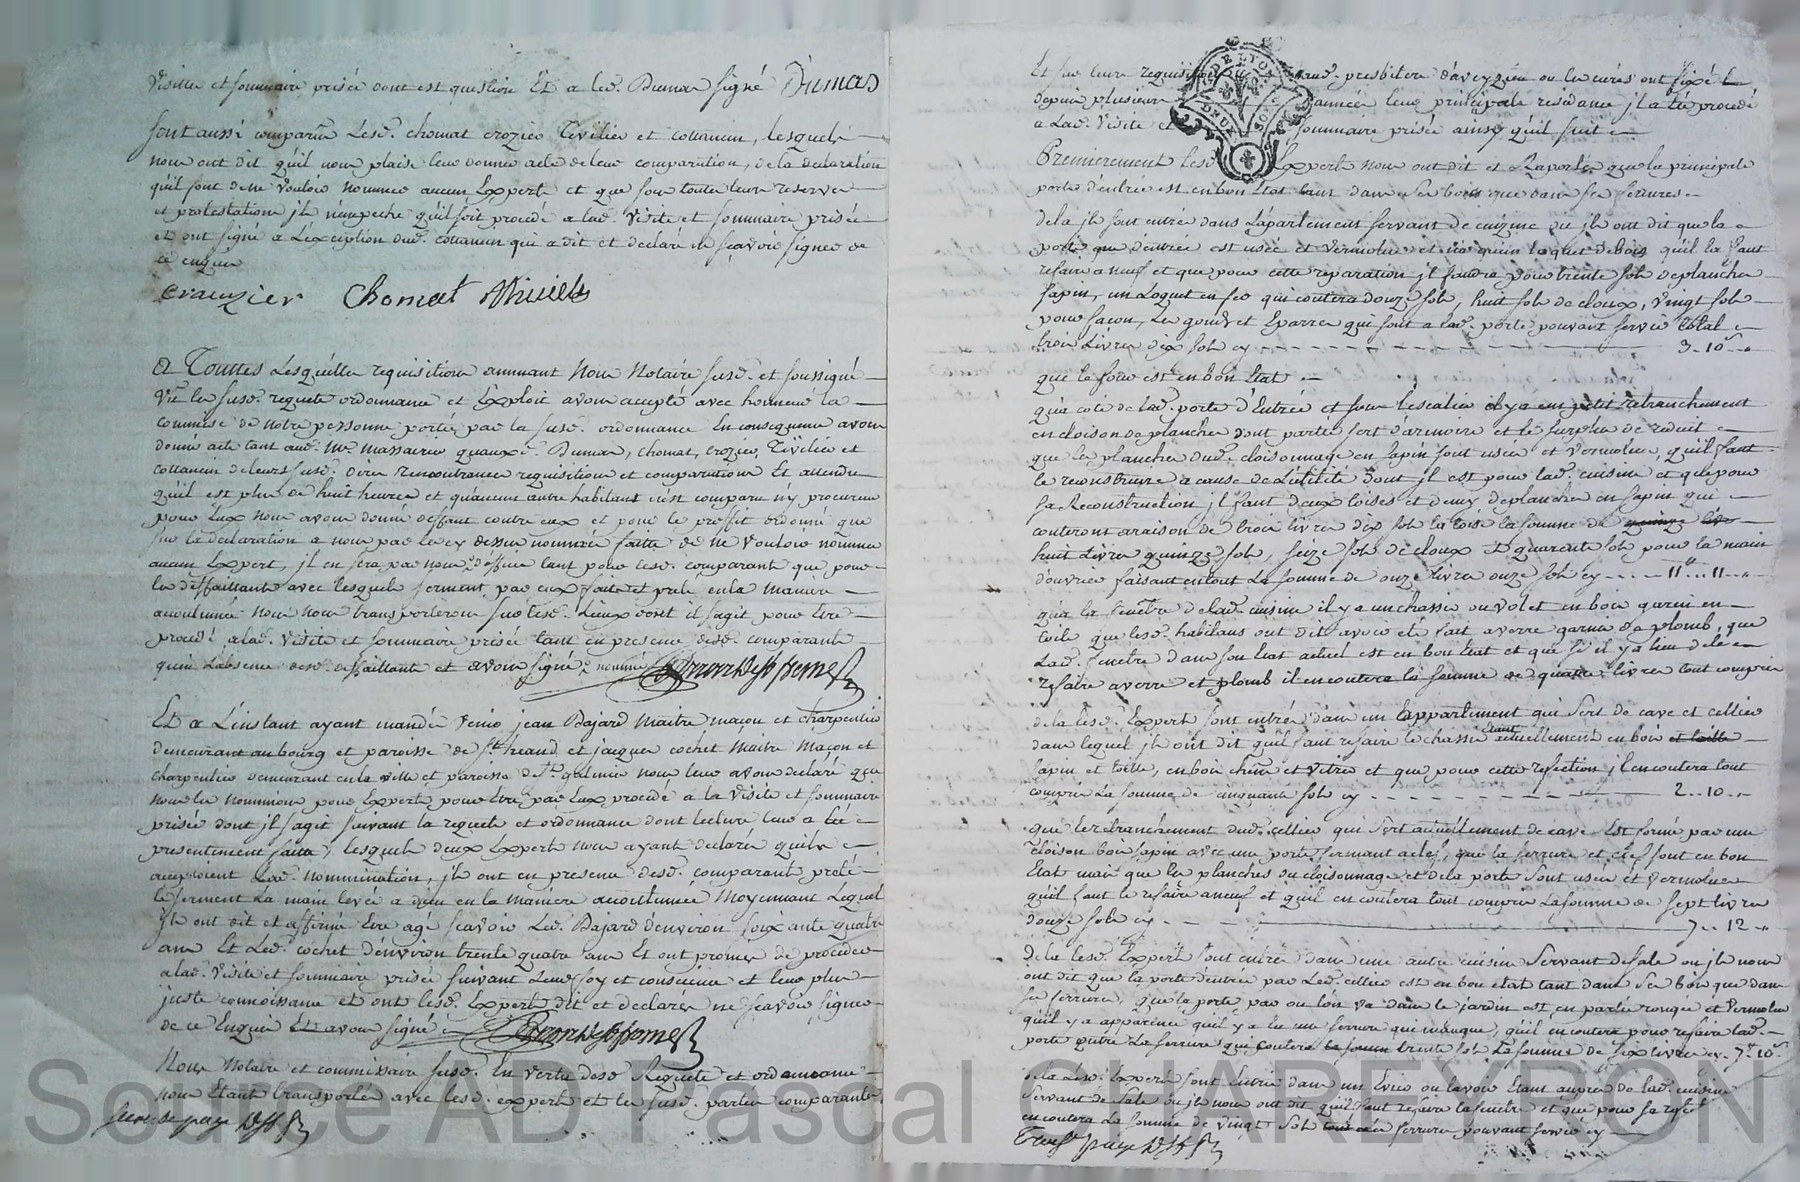 visitte et sommaire prisée dont est question Et a led. Dumas signé Dumas
sont aussi comparus Lesd. chomat crozier Tivilier et cottancin, lesquels
nous ont dit qu'il nous plaise leur donner acte de leur comparution, de la declaration
qu'il font de ne vouloir nommer aucun Expert et que sous toutes leurs reserves
et protestations jls n'empeche qu'il soit procedé a lad. visite et sommaire prisée
et ont signé a L'exception dud. cottancin qui a dit et declaré ne sçavoir signer de
ce enquis
crauzier Chomat Thivilier
A Touttes Lesquelles requisitions ennuant Nous Notaire susd. et soussigné
Vu les susd. requete ordonnance et Exploit avons accepté avec honneur la
commise de notre personne portée par la susd. ordonnance En consequence avons
donné acte tant aud. Me. Massairio quauxd. Dumas, chomat, crozier, Tivilier et
cottancin de leurs susd. dires remontrances requisitions et comparutions Et attendu
qu'il est plus de huit heures et qu'aucuns autre habitant n'est comparu ny procureur
pour Eux nous avons donné deffaut contre eux et pour le proffit ordonné que
sur la declaration a nous par les cy dessus nommés faitte de ne vouloir nommer
aucun Expert, jl en sera par nous d'office tant pour lesd. comparants que pour
les deffaillants avec lesquels serment par eux fait et preté en la maniere
accoutumée nous nous transporterons sur lesd. Lieux dont il s'agit pour Etre
procedé a lad. visite et sommaire prisée tant en presence desd. comparants
qu'en L'absence desd. deffaillants et avons signé nommé
Et a L'instant ayant mandés venir jean Bajard Maitre maçon et charpentier
demeurant au bourg et paroisse de St. heand et jacques cochet Maitre Maçon et
charpentier demeurant en la ville et paroisse de St. galmier nous leur avons declaré que
nous les nommions pour Experts pour Etre par Eux procedé a la visite et sommaire
prisée dont jl s'agit suivant la requete et ordonnance dont lecture leur a été
presentement faitte, lesquels deux Experts nous ayant declarés quils
acceptoient Lad. nommination, jls ont en presence desd. comparants preté
le serment La main levée a dieu en la maniere accoutumée Moyennant Lequel
jls ont dit et affirmé Etre agé sçavoir Led. Bajard d'environ soixante quatre
ans Et Led. cochet d'environ trente quatre ans Et ont promis de proceder
a lad. visite et sommaire prisée suivant Leurs foy et conscience et leur plus
juste connoissance et ont lesd. Experts dit et declarés ne sçavoir signer
de ce Enquis Et avons signé
Nous Notaire et commissaire susd. En vertu desd. Requete et ordonnance
nous Etant transportés avec lesd. experts et les susd. parties comparants
Et sur leurs requisitions aud. presbitere d'aveyzieu ou les curés ont fixé
depuis plusieurs années leur principale residance jl a été procedé
a Lad. visite et sommaire prisée ainsy qu'il suit
DE LYON
DEUX SOLS
Premierement lesd. Experts nous ont dit et Raportés que la principale
porte d'entrée est en bon Etat tant dans ses bois que dans ses ferrures
de la jls sont entrés dans L'apartement servant de cuizine ou jls ont dit que la
porte d'entrée est usée et vermolue et n'a qu'un loquet de bois qu'il la faut
refaire a neuf et que pour cette reparation jl faudra pour trente sols de planches
sapin, un Loquet en fer qui coutera douze sols, huit sols de cloux, vingt sols
pour façon, Les gonds et Eparres qui sont a lad. porte pouvant servir total
trois Livres dix sols cy 3. 10s
que le four est en bon Etat
qu'a coté de lad. porte d'Entrée et sous l'escalier il y a un petit retranchement
en cloison de planches dont partie sert d'armoire et le surplus de reduit
que les planches dud. cloisonnage en sapin sont usées et vermolues, qu'il faut
le reconstruire a cause de L'utilité dont jl est pour lad. cuisine et que pour
sa Reconstruction jl faut deux toises et demy de planches en sapin qui
couteront a raison de trois livres dix sols la toise la somme de
huit Livres quinze sols, seize sols de cloux et quarente sols pour la main
d'ouvrer faisant en tout La somme de onze livres onze sols cy 11. 11.
qu'a la fenêtre de lad. cuisine il y a un chassis ou volet en bois garni en
toile que lesd. habitans ont dit avoir été fait a verre garni de plomb, que
Lad. fenetre dans son Etat actuel est en bon Etat et que s'il y a lieu de le
refaire a verre et plomb il en coutera la somme de quatre livres tout compris
de la lesd. Experts sont entrés dans un Appartement qui sert de cave et cellier
dans lequel jls ont dit qu'il faut refaire le chassis étant actuellement en bois et toille
sapin et toille, en bois chêne et vitres et que pour cette refection jl en coutera tout
compris La somme de cinquante sols cy 2. 10.
que le retranchement dud. cellier qui sert actuellement de cave Est formé par une
cloison bois sapin avec une porte fermant a clef, que la serrure et clef sont en bon
Etat mais que les planches du cloisonnage et de la porte sont usées et vermolues
qu'il faut le refaire a neuf et qu'il en coutera tout compris La somme de sept livres
douze sols cy 7. 12.
De la lesd. Experts sont entrés dans une autre cuisine servant de sale ou jls nous
ont dit que la porte d'entrée par led. cellier est en bon etat tant dans ses bois que dans
ses ferrures, que la porte par ou lon va dans le jardin est en partie rongée et vermolue
qu'il y a apparence quil y a eu une serrure que manque, qu'il en coutera pour refaire lad.
porte outre La serrure qui coutera trente sols La somme de six livres cy 7. 10s
de la Lesd. Experts sont Entrés dans un Evier ou lavoir Etant auprès de lad. cuisine
servant de sale ou jls nous ont dit qu'il faut refaire la fenetre et que pour sa refection
en coutera La somme de vingt sols ferrures pouvant servir cy
Source AD Pascal CHAREYRON